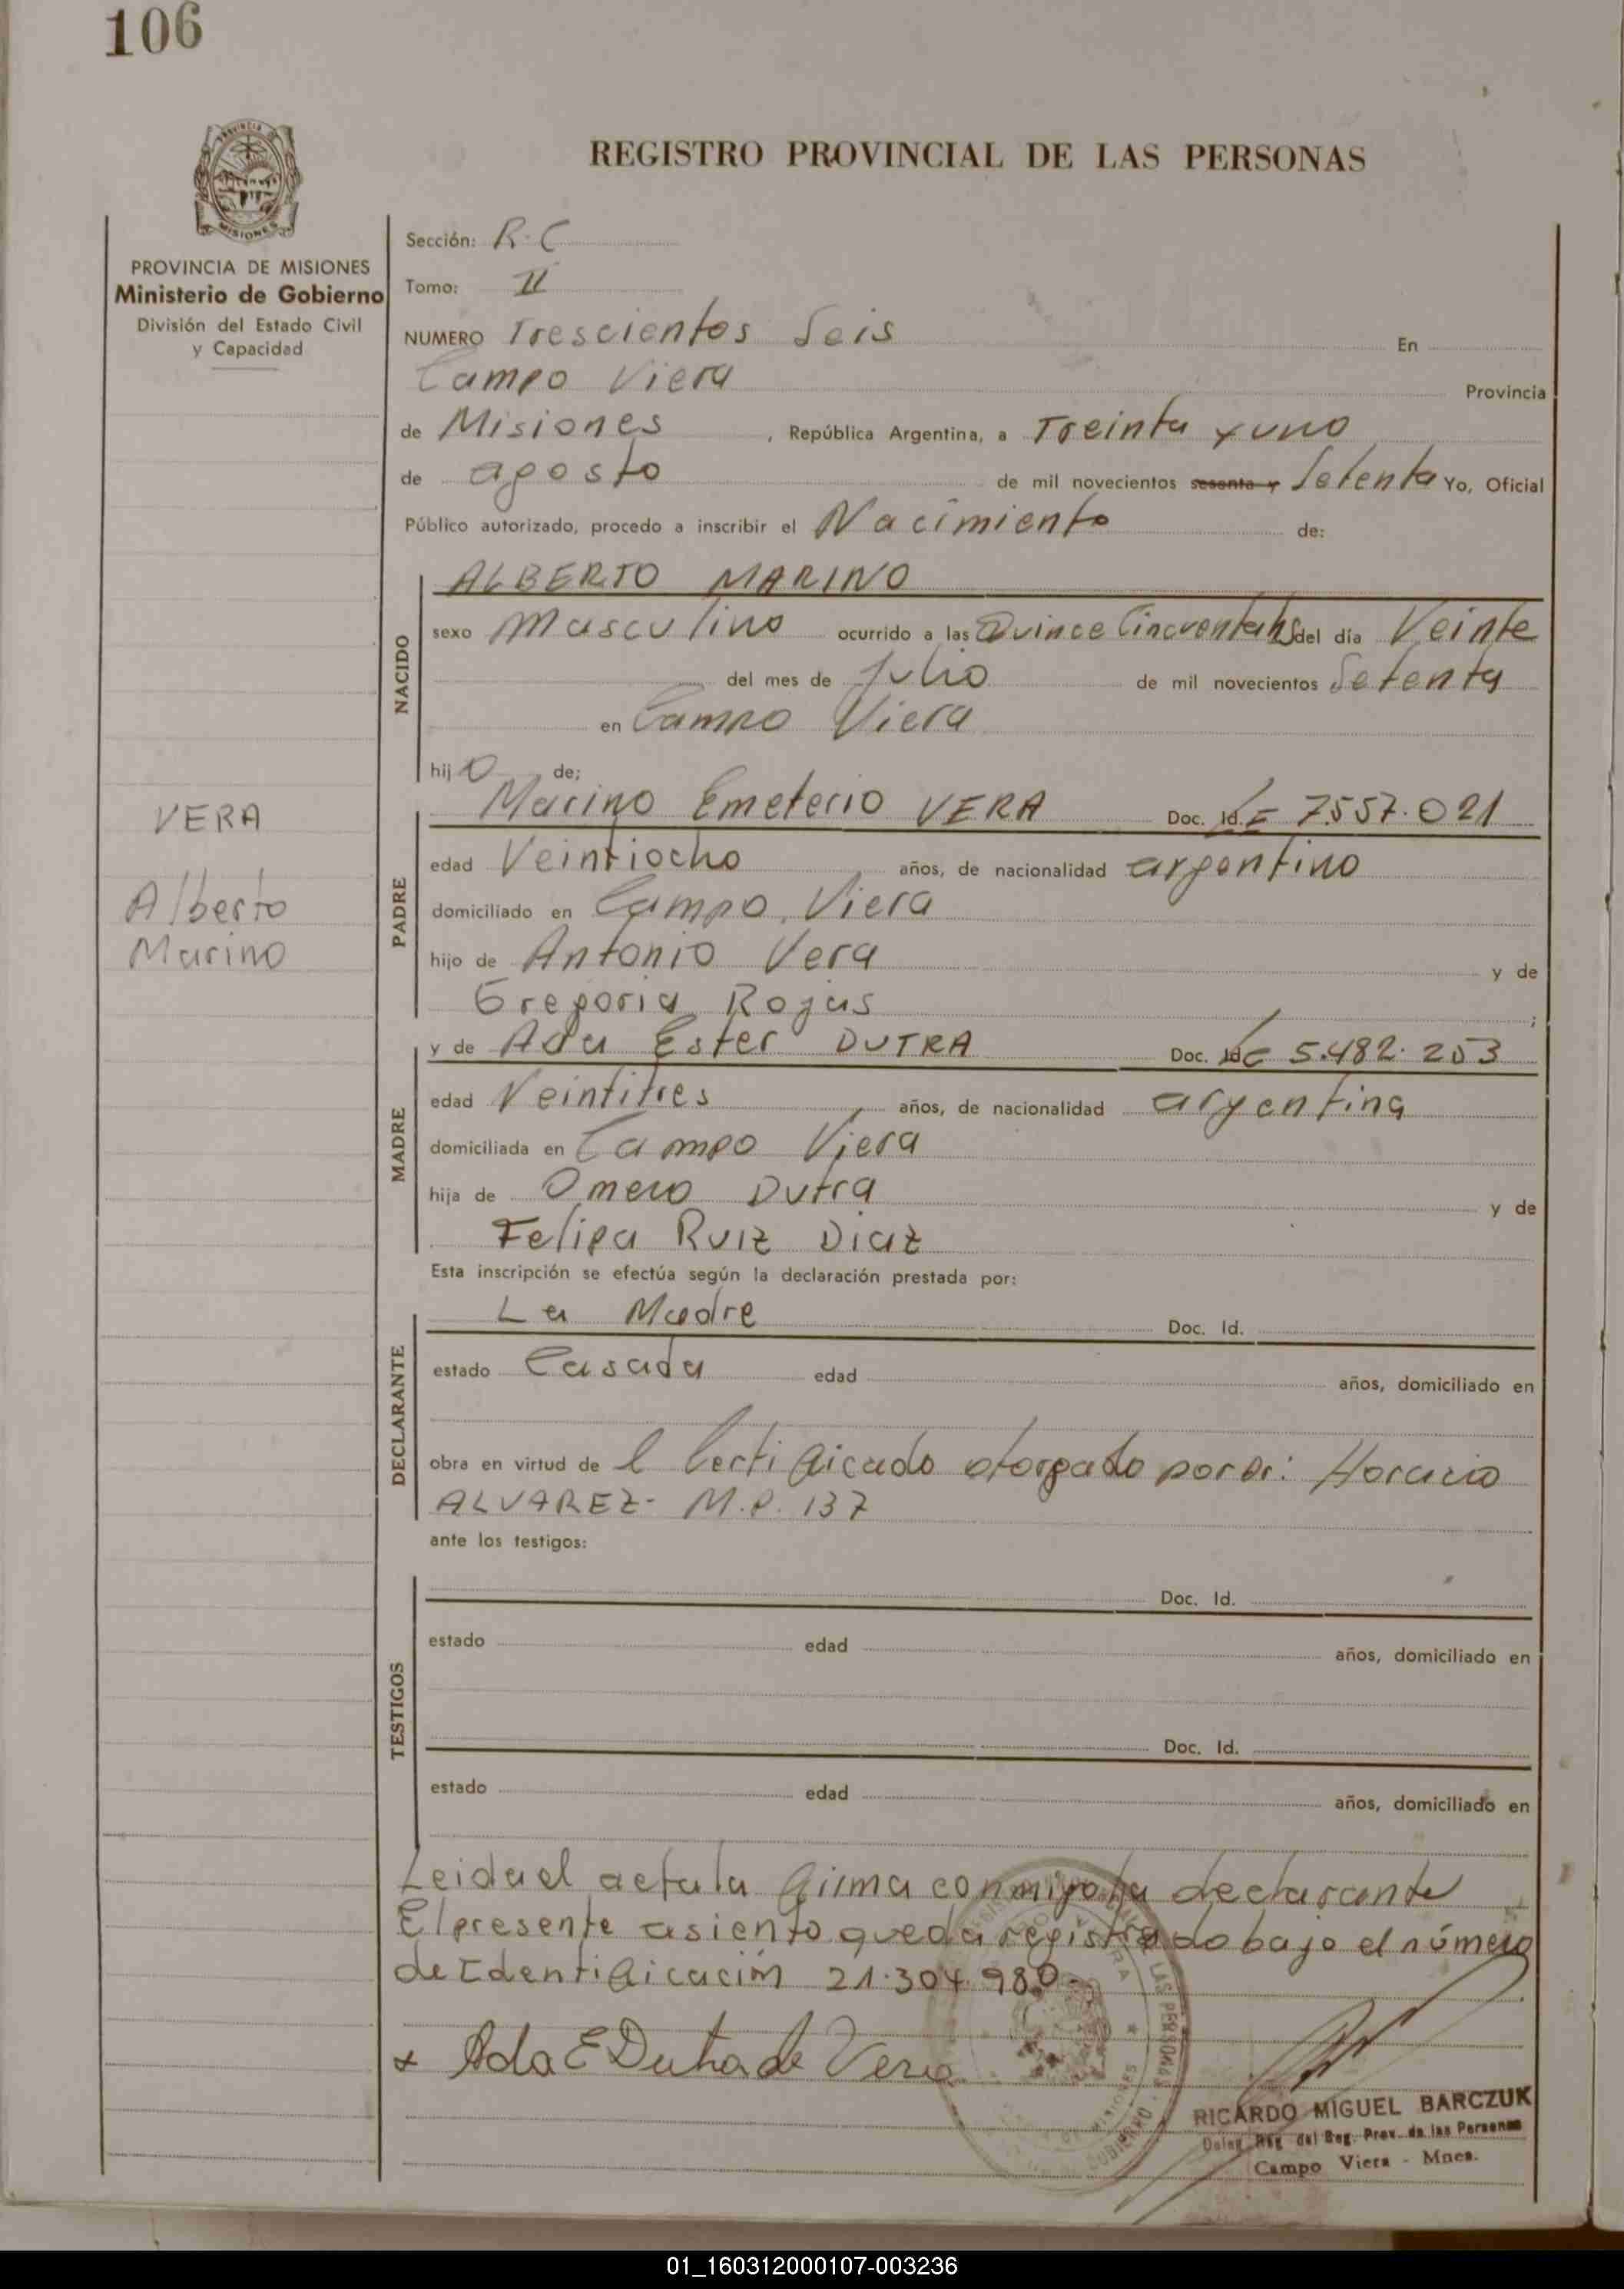 106
REGISTRO PROVINCIAL DE LAS PERSONAS
PROVINCIA DE MISIONES
Ministerio de Gobierno
División del Estado Civil
y Capacidad
Sección: R.C
Tomo: II
NUMERO Trescientos Seis En
Campo Viera Provincia
de Misiones, República Argentina, a Treinta y uno
de agosto de mil novecientos sesenta y Setenta Yo, Oficial
Público autorizado, procedo a inscribir el Nacimiento de:
NACIDO
ALBERTO MARINO
sexo Masculino ocurrido a las Quince Cincuenta hs del día Veinte
del mes de Julio de mil novecientos Setenta
en Campo Viera
hijo de;
VERA
Alberto
Marino
PADRE
Marino Emeterio VERA Doc. Id. LE 7.557.021
edad Veintiocho años, de nacionalidad argentino
domiciliado en Campo Viera
hijo de Antonio Vera y de
Gregoria Rojas ;
MADRE
y de Ada Ester DUTRA Doc. Id. LC 5.482.253
edad Veintitres años, de nacionalidad argentina
domiciliada en Campo Viera
hija de Omero Dutra y de
Felipa Ruiz Diaz
Esta inscripción se efectúa según la declaración prestada por:
DECLARANTE
La Madre Doc. Id.
estado Casada edad años, domiciliado en
obra en virtud de l Certificado otorgado por Dr: Horacio
ALVAREZ- M.P. 137
ante los testigos:
TESTIGOS
Doc. Id.
estado edad años, domiciliado en
Doc. Id.
estado edad años, domiciliado en
Leida el acta la firma conmigo la declarante
El presente asiento queda registrado bajo el número
de Identificación 21.304.980-
x Ada E Dutra de Vera
RICARDO MIGUEL BARCZUK
del Reg. Prov. de las Personas
Campo Viera - Mnes.
01_160312000107-003236